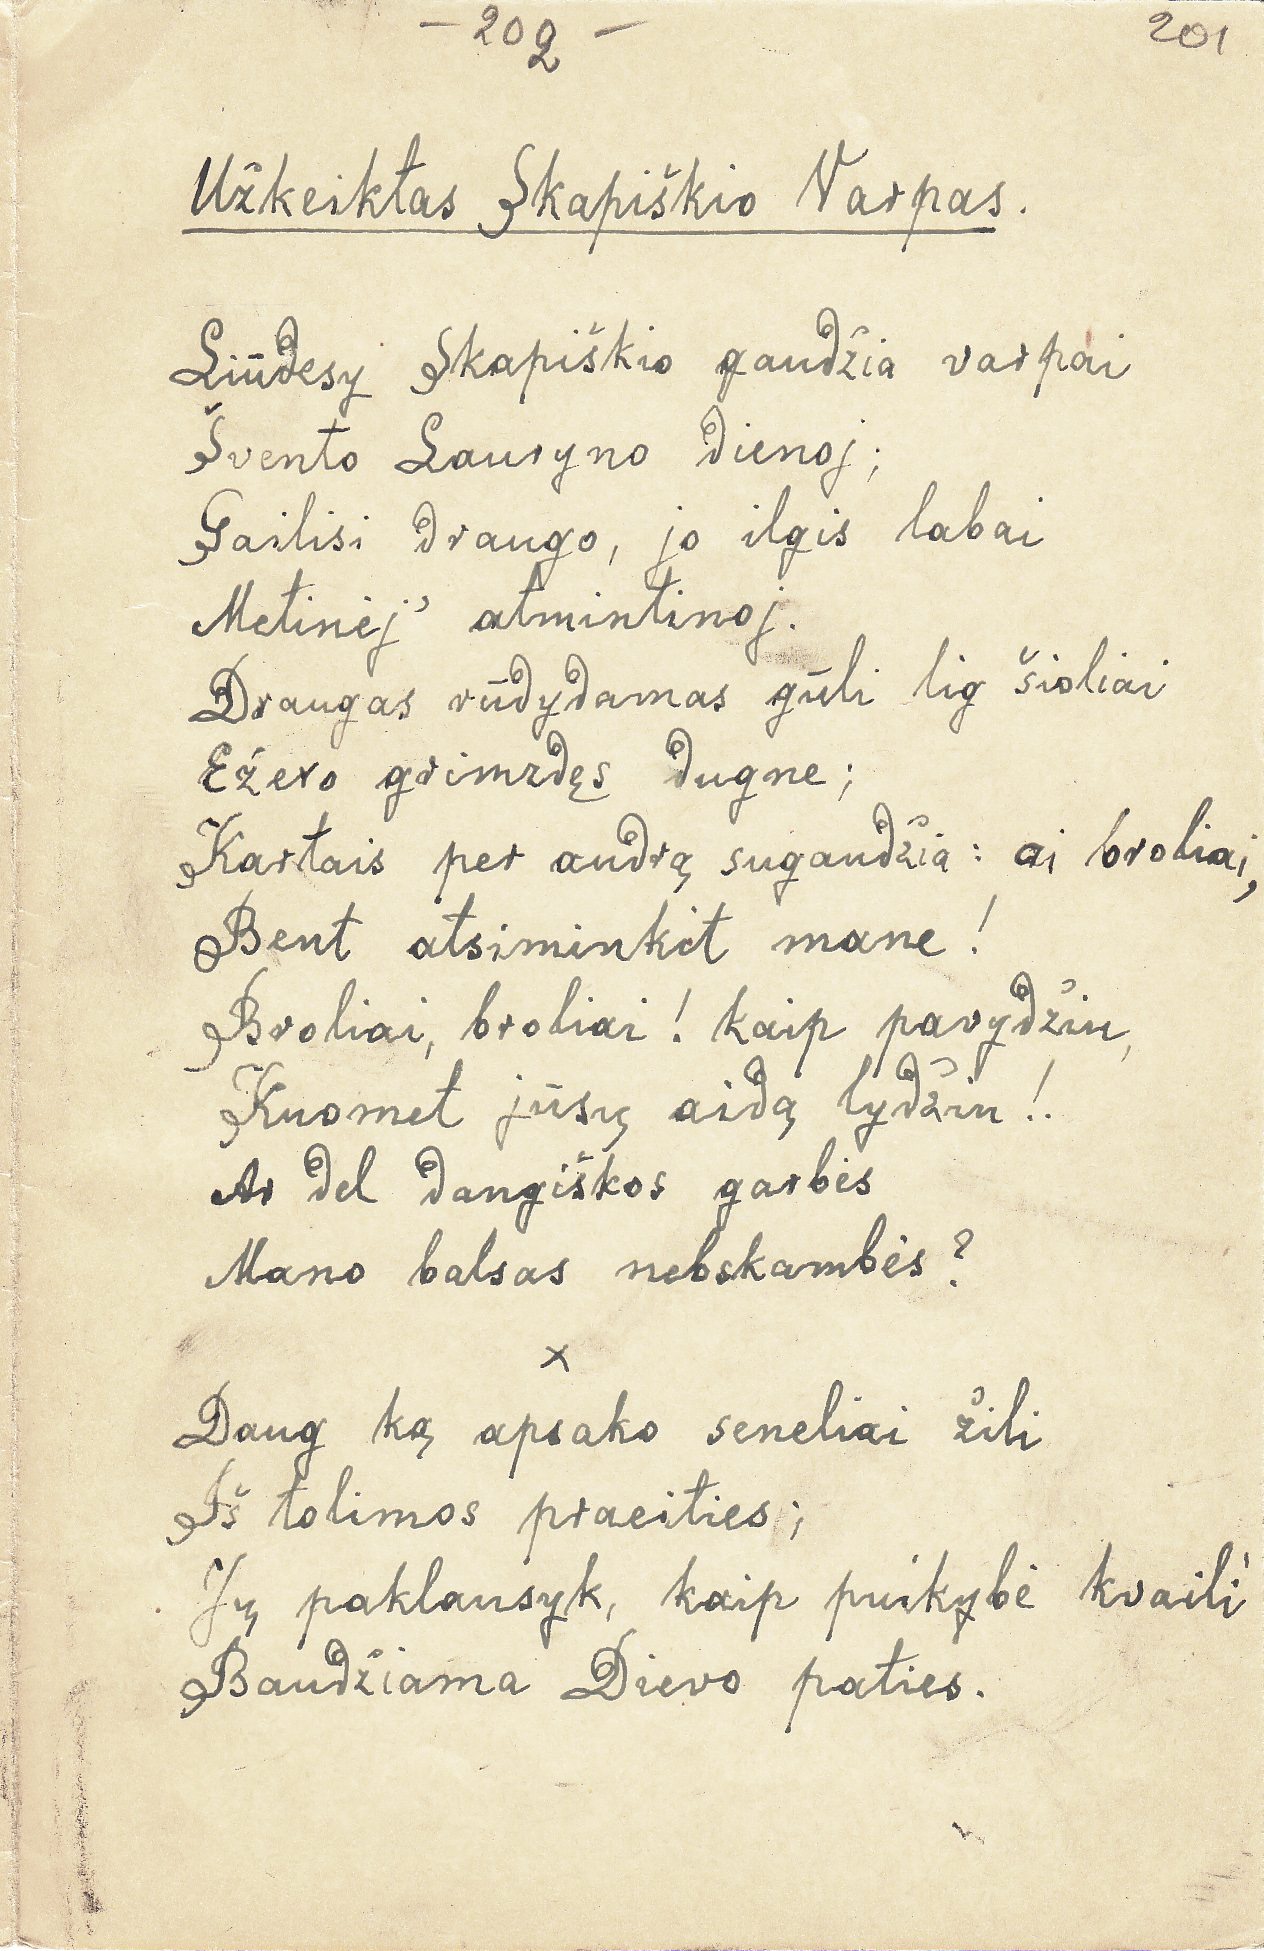 - 202 -
201
Užkeiktas Skapiškio Varpas.
Liūdesy Skapiškio gaudžia varpai
Švento Lauryno dienoj;
Gailisi draugo, jo ilgis labai
Metinėj' atmintinoj.
Draugas rūdydamas gūli lig šioliai
Ežero grimzdęs dugne;
Kartais per audrą sugaudžia: ai broliai,
Bent atsiminkit mane!
Broliai, broliai! kaip pavydžiu,
Kuomet jūsų aidą lydžiu!.
Ar del dangiškos garbės
Mano balsas nebskambės?
x
Daug ką apsako seneliai žili
Iš tolimos praeities;
Jų paklausyk, kaip puikybė kvaili
Baudžiama Dievo paties.